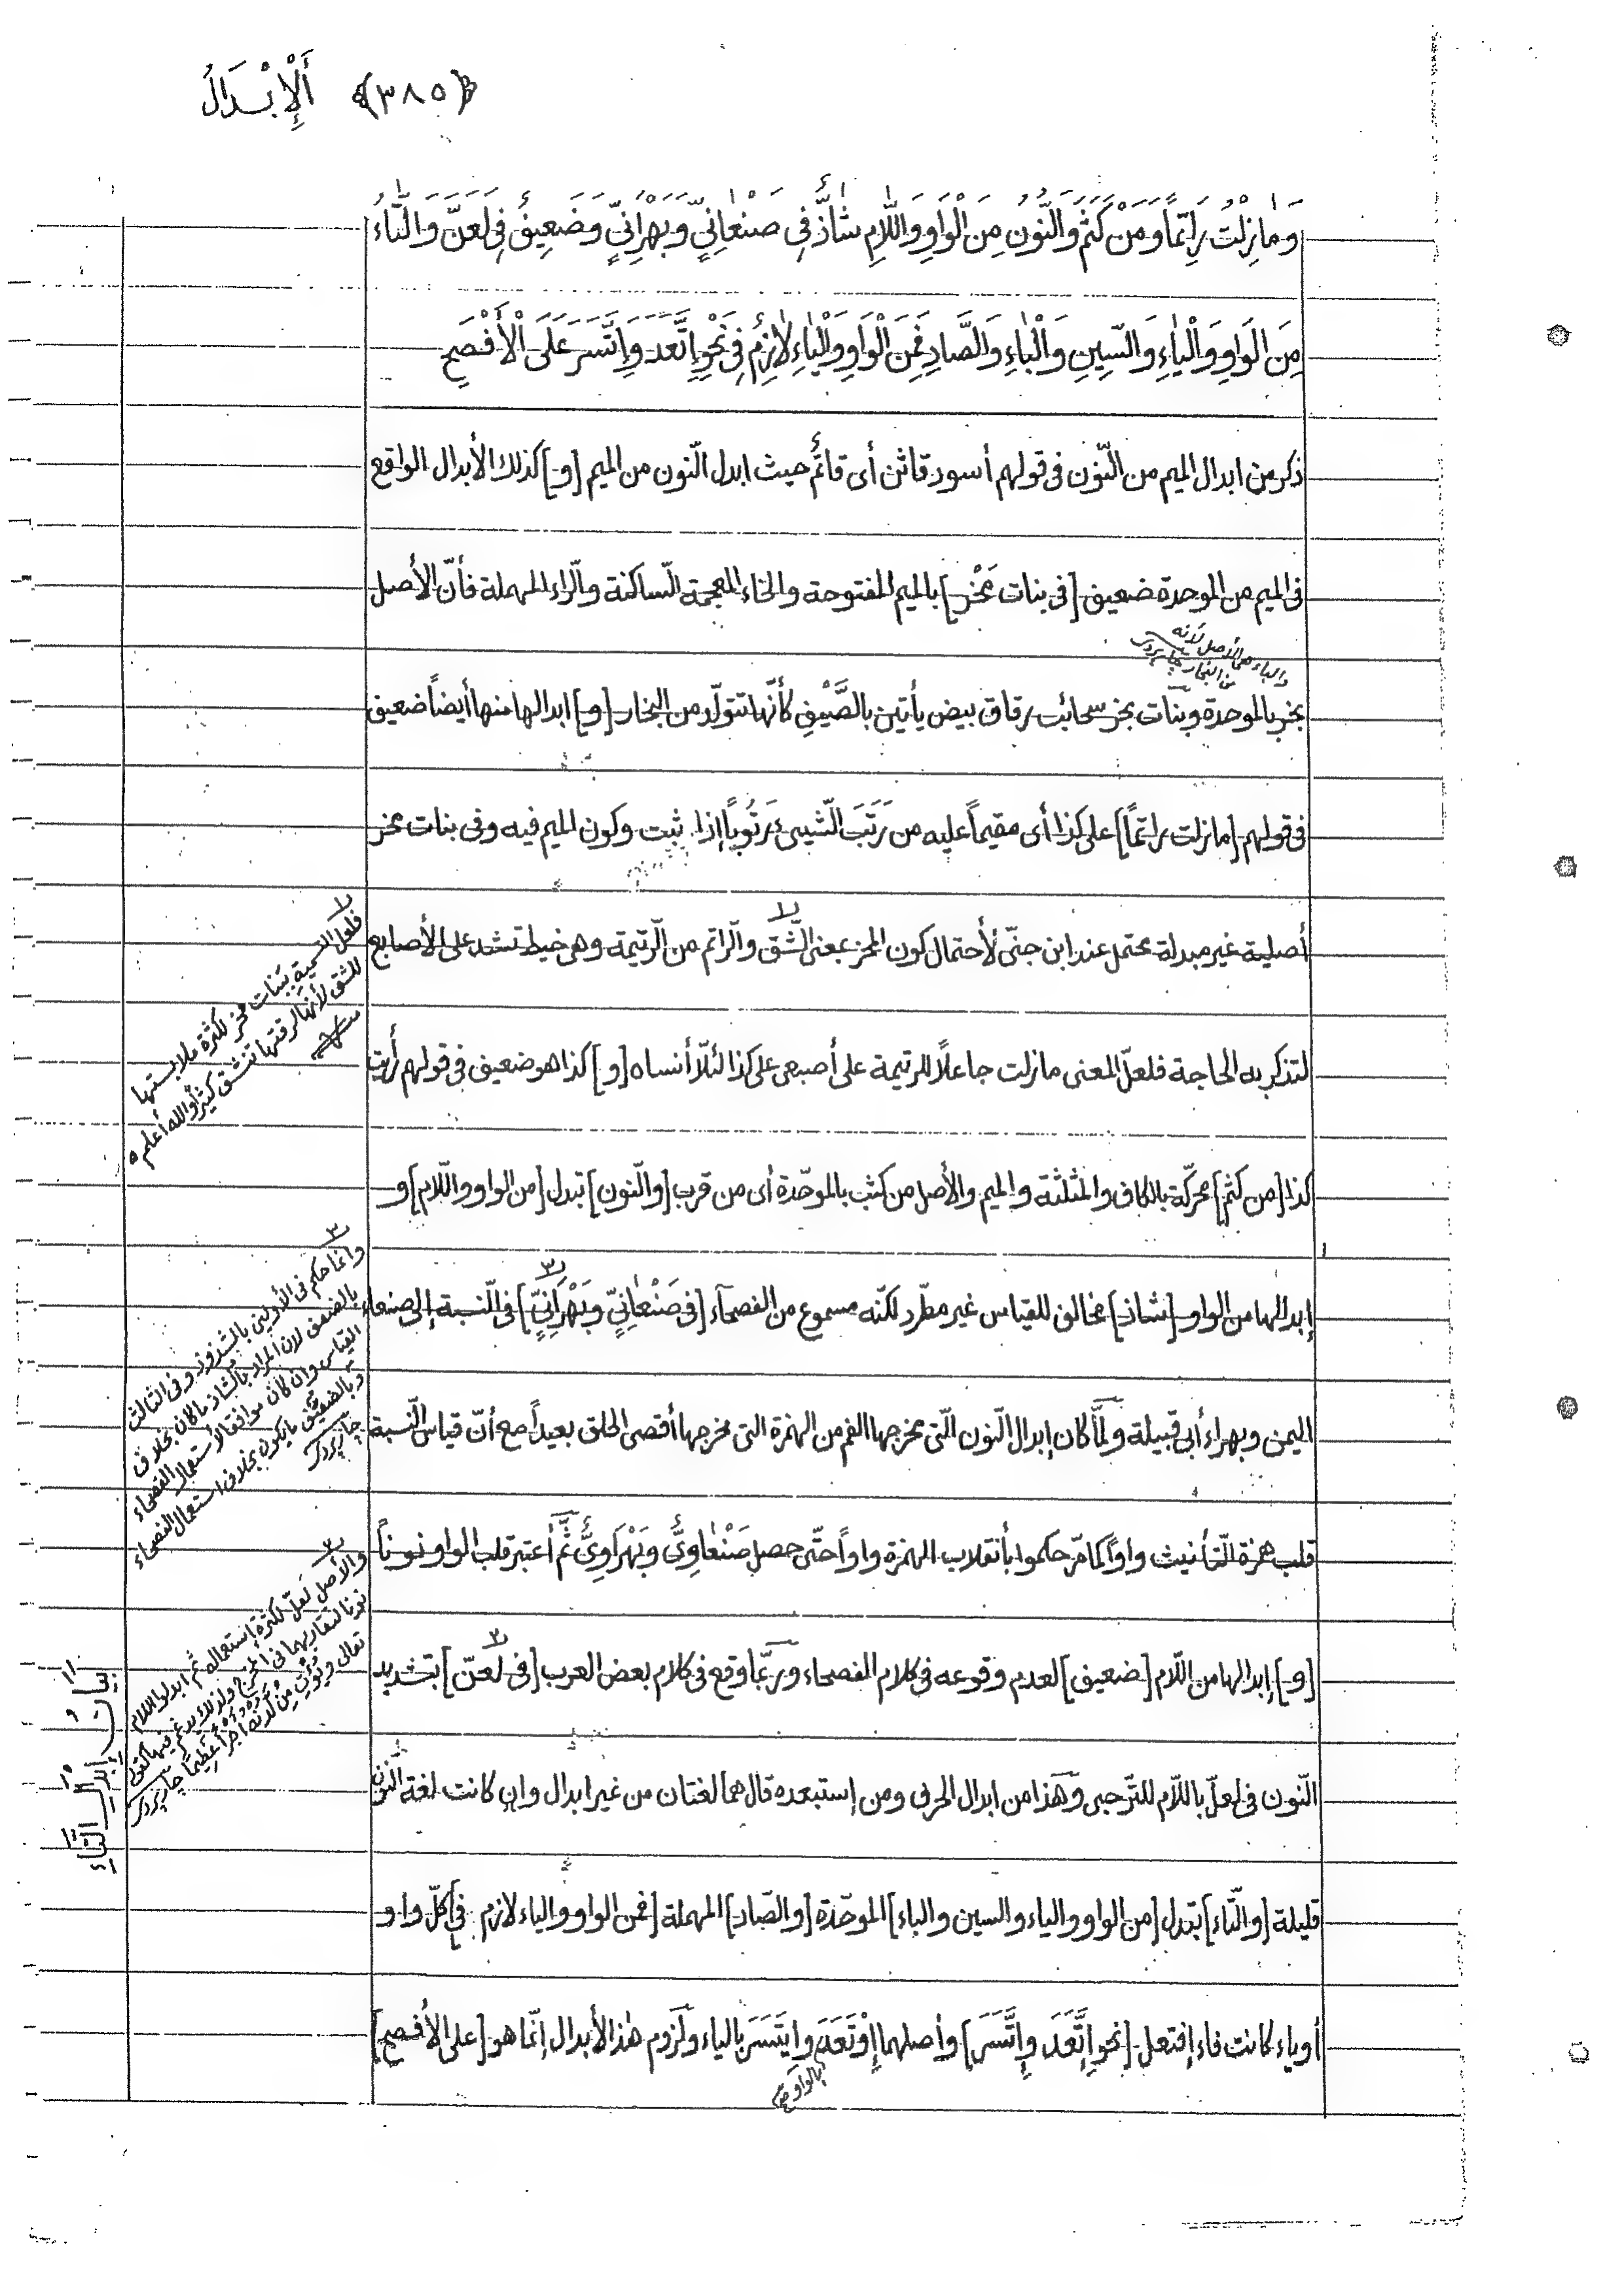 ﴿٣٨٥﴾ أَلْإِبْدَالُ
وَمٰازِلْتُ رٰاتِمًا وَمِنْ كَثَمٍ وَالنُّونُ مِنَ الْوٰاوِ وَاللّٰامِ شٰاذٌّ فِى صَنْعٰانِىٍّ وَبَهْرٰانِىٍّ وَضَعِيفٌ فِى لَعَنَّ وَالتّٰاءُ
مِنَ الْوٰاوِ وَالْيٰاءِ وَالسِّينِ وَالْبٰاءِ وَالصّٰادِ فَمِنَ الْوٰاوِ وَالْيٰاءِ لٰازِمٌ فِى نَحْوِ اِتَّعَدَ وَاِتَّسَرَ عَلَى الْأَفْصَحِ
ذكر من ابدال الميم من النّون فى قولهم أسود قاتن أى قاتم حيث ابدل النّون من الميم [و] كذلك الأبدال الواقع
فى الميم من الموحدة ضعيف [فى بنات مَخْرٍ] بالميم المفتوحة والخاء المعجمة السّاكنة والرّاء المهملة فأنّ الأصل
والباء هى الأصل لأنه
من البخار جاپردى
بخر بالموحدة وبنات بخر سحائب رقاق بيض يأتين بالصَّيْفِ كأنّها تتولّد من البخار [و] ابدالها منها أيضاً ضعيف
فى قولهم [ما زلت راتمًا] على كذا أى مقيماً عليه من رَتَبَ الشّيىء رُتُوباً إذا ثبت وكون الميم فيه وفى بنات مخر
أصلية غير مبدلة محتمل عند ابن جنّى لأحتمال كون المخر بمعنى الشّق والرّاتم من الرّتيمة وهى خيط تشد على الأصابع
لتذكر به الحاجة فلعلّ المعنى ما زلت جاعلاً للرتيمة على أصبعى على كذا لئلّا أنساه [و] كذا هو ضعيف فى قولهم رأيت
كذا [من كثم] محركّة بالكاف والمثلثة والميم والأصل من كثب بالموحّدة أى من قرب [والنّون] تبدل [من الواو واللّام] و
إبدالها من الواو [شاذ] مخالف للقياس غير مطّرد لكنّه مسموع من الفصحآء [فى صَنْعٰانِىٍّ وبَهْرٰانِىٍّ] فى النّسبة إلى صنعاء
اليمن وبهراء أبى قبيلة ولمّا كان إبدال النّون الّتى مخرجها الفم من الهمزة التى مخرجها أقصى الحلق بعيداً مع أنّ قياس النّسبة
قلب همزة التّأنيث واواً كما مرّ حكموا بأنقلاب الهمزة واواً حتّى حصل صَنْعٰاوِىٌّ وبَهْرَاوِىٌّ ثمّ أعتبر قلب الواو نوناً
[و] إبدالها من اللّام [ضعيف] لعدم وقوعه فى كلام الفصحاء وربّما وقع فى كلام بعض العرب [فى لعنّ] بتشديد
النّون فى لعلّ باللّام للترّجى وهذا من ابدال الحرف ومن إستبعده قال هما لغتان من غير ابدال وان كانت لغة النّون
قليلة [والتّاء] تبدل [من الواو والياء والسين والباء] الموحّدة [والصّاد] المهملة [فمن الواو والياء لازم فى] كلّ واو
أو ياء كانت فاء إفتعل [نحو اِتَّعَدَ واِتَّسَرَ] وأصلهما اِوْتَعَدَ واِيتَسَرَ بالياء ولزوم هذا الأبدال إنّما هو [على الأفصح]
بالواو
فلعل التسمية ببنات مخر لكثرة ملابستها
للشق لأنها لرقتها تنشق كثيراً والله أعلم
وانما حكم فى الأولين بالشذوذ وفى الثالث
بالضعف لان المراد بالشاذ ما كان بخلاف
القياس وان كان موافقا لأستعمال الفصحاء
وبالضعيف ما يكون بخلاف استعمال الفصحاء
جاپردى
والأصل لعلّ لكثرة استعماله ثم ابدلوا اللام
نونا لتقاربهما فى المخرج ولذلك يدغم فيها كقوله
تعالى ويؤت من لدنه اجراً عظيماً جاپردى
ابدال التّاء